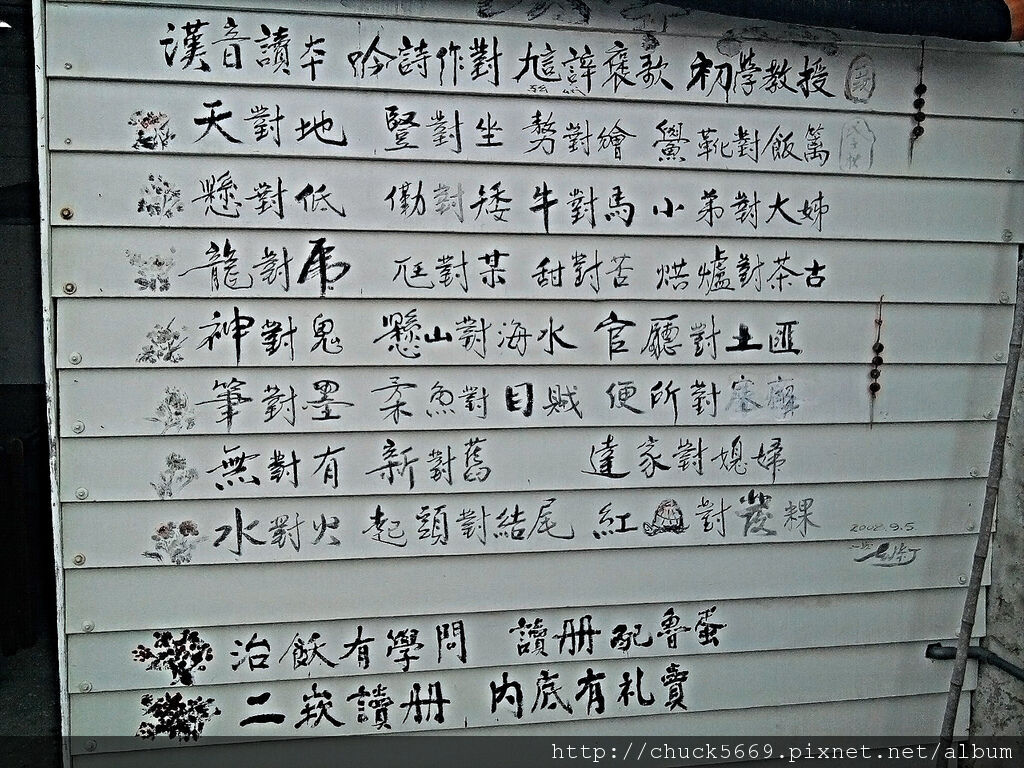 漢音讀本 吟詩作對 褒歌 初學教授
天對地 豎對坐 對繪 鱟靴對飯篱
懸對低 對矮 牛對馬 小弟對大姊
龍對虎 尫對某 甜對苦 烘爐對茶古
神對鬼 懸山對海水 官廳對土匪
筆對墨 柔魚對目賊 便所對
無對有 新對舊 達家對媳婦
水對火 起頭對結尾 紅 對發粿
2002.9.5
治飫有學問 讀冊配魯蛋
二崁讀冊 內底有礼賣
http://chuck5669.pixnet.net/album